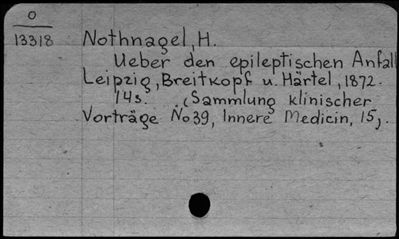 O
13318
Nothnagel, H.
Ueber den epileptischen Anfall
Leipzig, Breitkopf u. Härtel, 1872.
14s. (Sammlung klinischer
Vorträge No 39, Innere Medicin, 15).